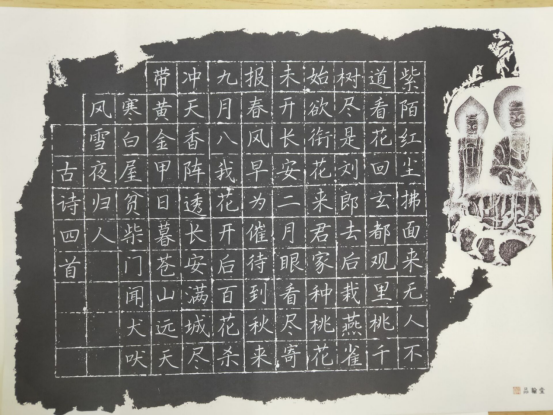 紫陌红尘拂面来无人不
道看花回玄都观里桃千
树尽是刘郎去后栽燕雀
始欲衔花来君家种桃花
未开长安二月眼看尽寄
报春风早为催待到秋来
九月八我花开后百花杀
冲天香阵透长安满城尽
带黄金甲日暮苍山远天
寒白屋贫柴门闻犬吠
风雪夜归人
古诗四首
品翰堂